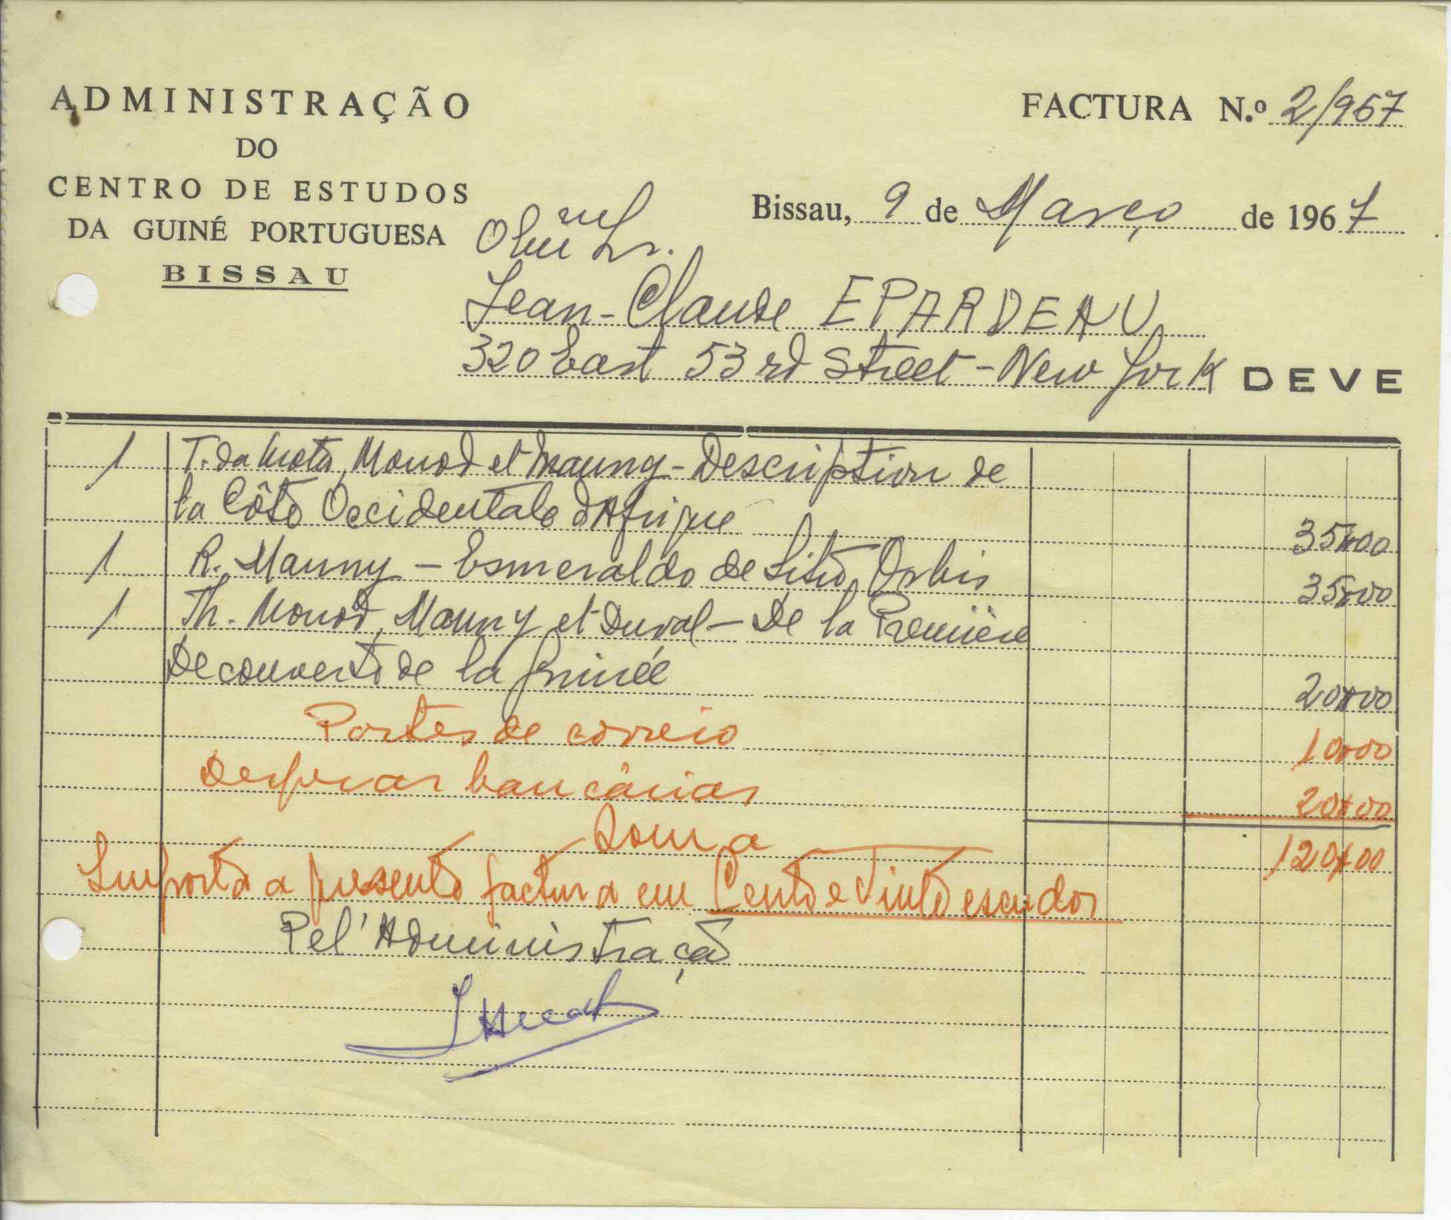 ADMINISTRAÇÃO
DO
CENTRO DE ESTUDOS
DA GUINÉ PORTUGUESA
BISSAU
FACTURA N.º 2/967
Bissau, 9 de Março de 1967
Sr.
Jean-Claude EPARDEAU
320 East 53rd Street - New York DEVE
1 T. da Mota, Monod et Mauny - Description de
la Côte Occidentale d'Afrique 35$00
1 R. Mauny - Esmeraldo de Situ Orbis 35$00
1 Th. Monod, Mauny et Duval - De la Première
Decouverte de la Guinée 20$00
Portes de correio 10$00
Despesas bancárias 20$00
Soma 120$00
Importa a presente factura em Cento e Vinte escudos
Pel'Administração